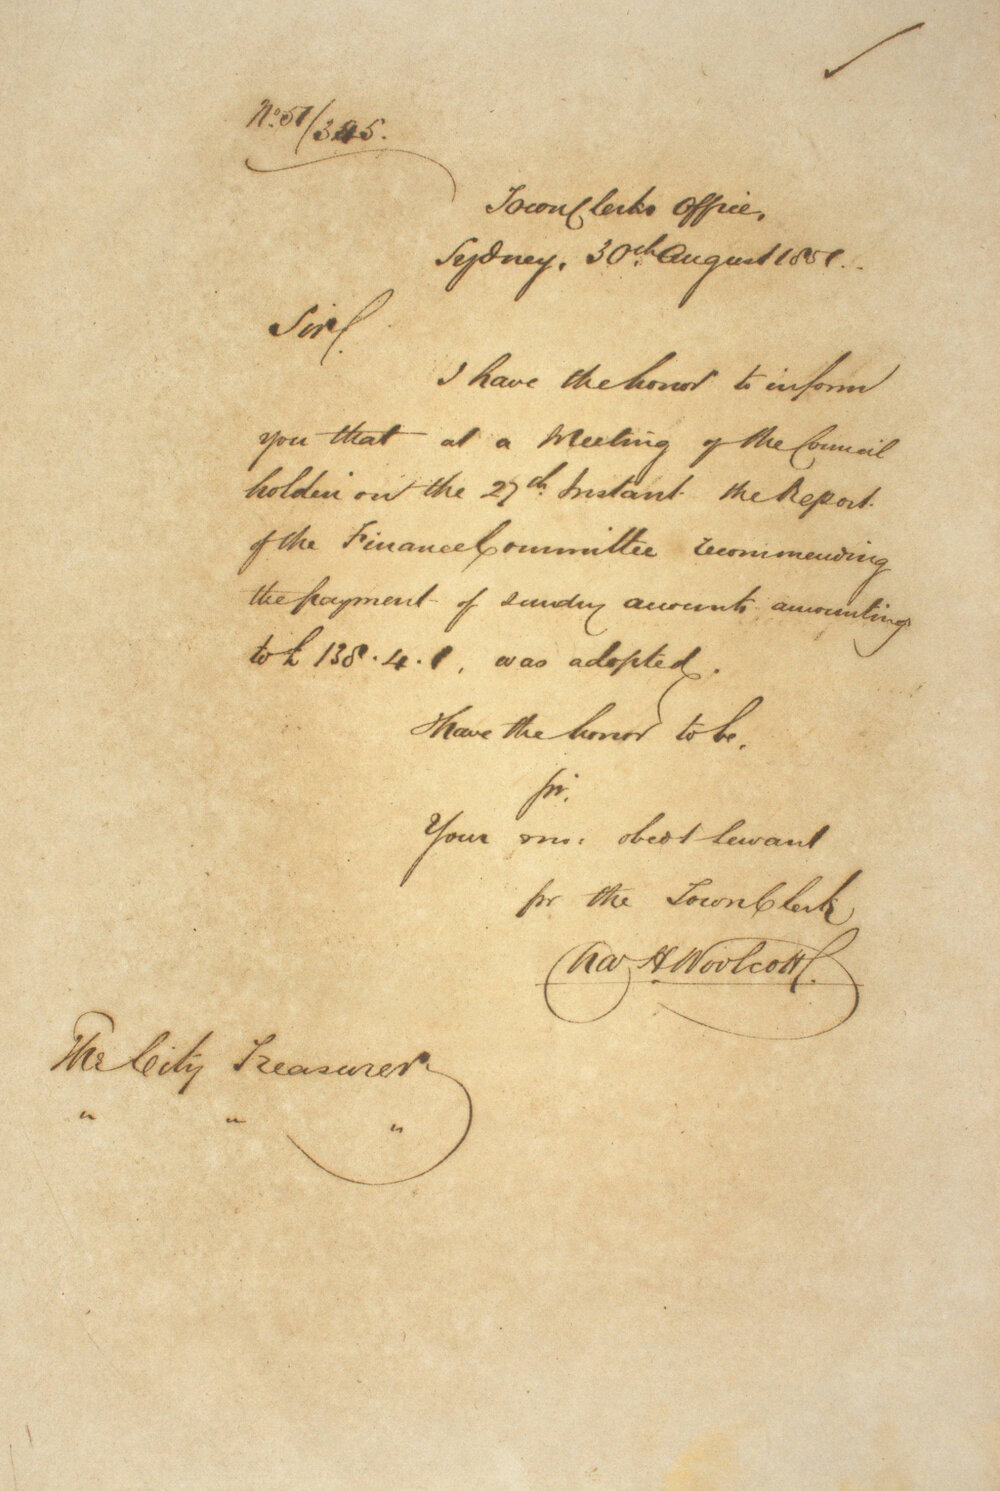 No. 51/345.
Town Clerks Office,
Sydney, 30th August 1851.
Sir,
I have the honor to inform
you that at a Meeting of the Council
holden on the 27th Instant the Report
of the Finance Committee recommending
the payment of sundry accounts amounting
to £138.4.1, was adopted.
I have the honor to be,
Sir,
Your mo: obedt Servant
for the Town Clerk
Chas H Woolcott
The City Treasurer
" " "